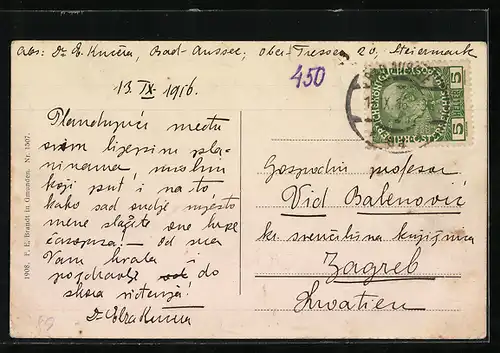 Abs: Dr E. Kučera, Bad-Aussee, Ober-Tressen 20, Steiermark
13. IX. 1916.
450
5 5
Plandujući među
ovim lijepim pla-
ninama, mislim
koji put i na to
kako sad ovdje mjesto
mene slažete one
časopise! — Od sva
Vam hvala i
pozdravlje do
skora viđenja!
Dr Elza Kučera
Gospodin profesor
Vid Balenović
kr. sveučilišna knjižnica
Zagreb
Kroatien
1908. F. E. Brandt in Gmunden. Nr. 1507.